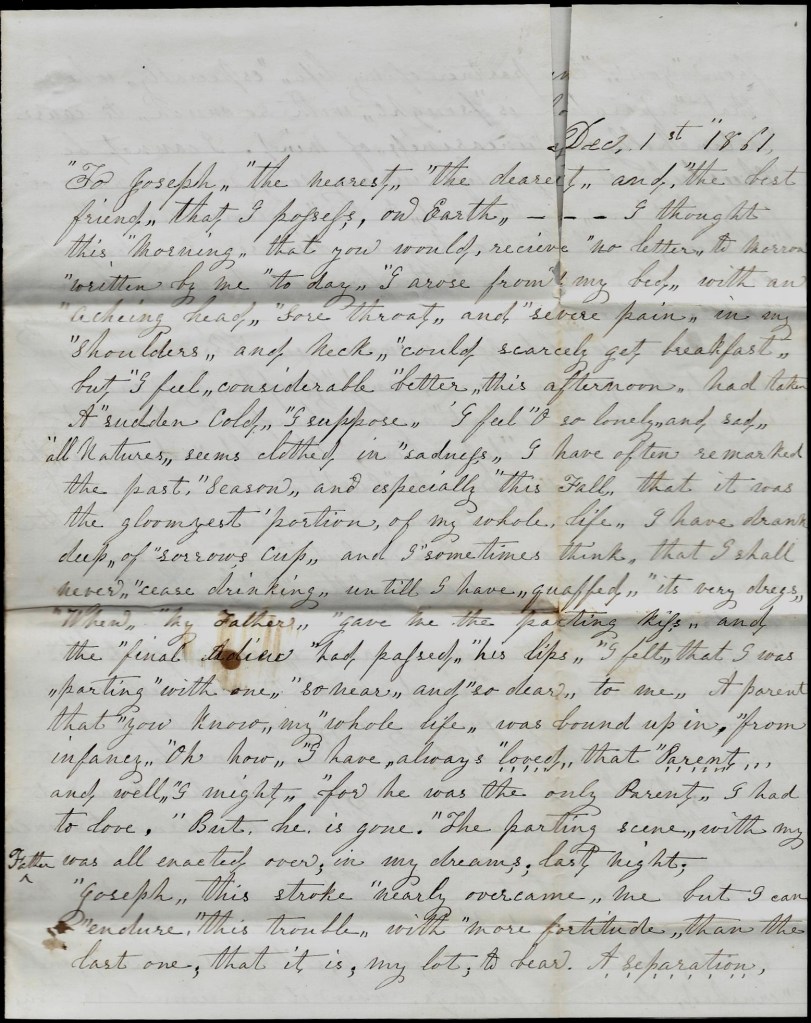 Dec. 1st "1861.
"To Joseph„ "the nearest„ "the dearest„ and, "the best
friend„ that I possess, on Earth„ – – – I thought
this "Morning„ that you would, recieve "no letter„ to morrow
"written by me "to day„ "I arose from my bed„ with an
"acheing head„ "Sore throat„ and "severe pain„ in my
"Shoulders„ and Neck„ "could scarcely get breakfast„
but "I feel„ considerable "better„ this afternoon„ had taken
A "sudden Cold„ "I suppose„ 'I feel "O so lonely„ and sad„
"all Natures„ seems clothed, in "sadness„ I have often remarked
the past, "Season„ and especially "this Fall„ that it was
the gloomyest 'portion, of my whole, life„ I have drank
deep„ of "sorrows Cup„ and I "sometimes think„ that I shall
never„ "cease drinking„ untill I have„ quaffed„ "its very dregs„
"When„ "my Father„ "gave me the parting kiss„ and
the "final Adieu "had passed„ "his lips„ "I felt„ that I was
„parting "with one„ "so near„ and "so dear„ to me„ A parent
that "you know„ my "whole life„ was bound up in, "from
infancy„ "Oh how„ "I have„ always "loved„ that "Parent„„
and well„ "I might„ "for he was the only Parent„ I had
to love. "But. he. is gone. "The parting scene„ with my
Father ^ was all enacted over, in my dreams, last night,
"Joseph„ this stroke "nearly overcame„ me but I can
"endure. "this trouble„ with "more fortitude„ than the
last one, that it is, my lot, to bear. A separation,